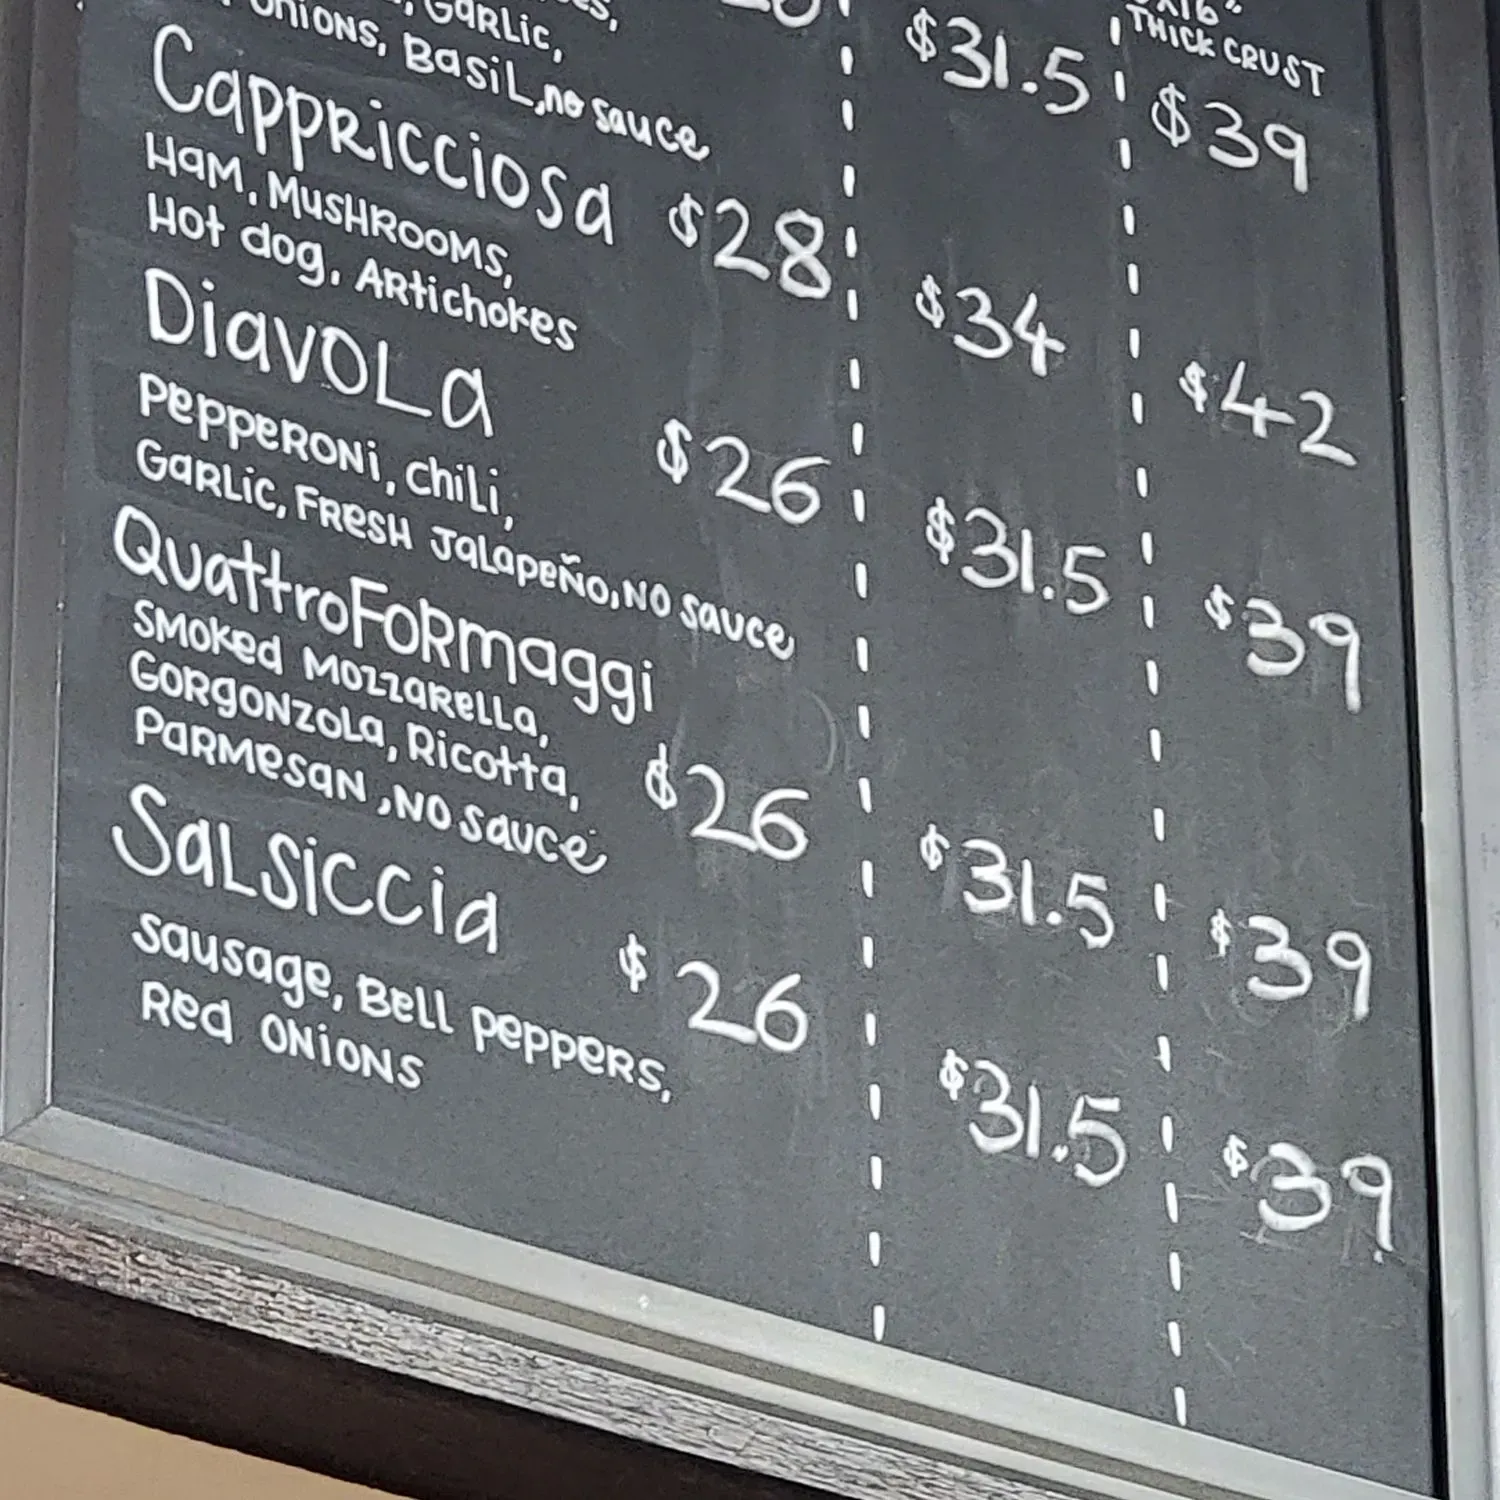 Garlic,
Onions, Basil, no sauce
$31.5
THICK CRUST
$39
Cappricciosa $28 $34 $42
Ham, Mushrooms,
Hot dog, Artichokes
Diavola
Pepperoni, chili, $26 $31.5 $39
Garlic, Fresh Jalapeño, no sauce
Quattro Formaggi
Smoked Mozzarella,
Gorgonzola, Ricotta, $26 $31.5 $39
Parmesan, no sauce
Salsiccia $26 $31.5 $39
Sausage, Bell peppers,
Red onions